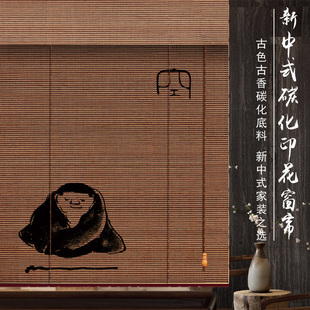 新中式碳化印花窗帘
古色古香碳化底料 新中式家装之选